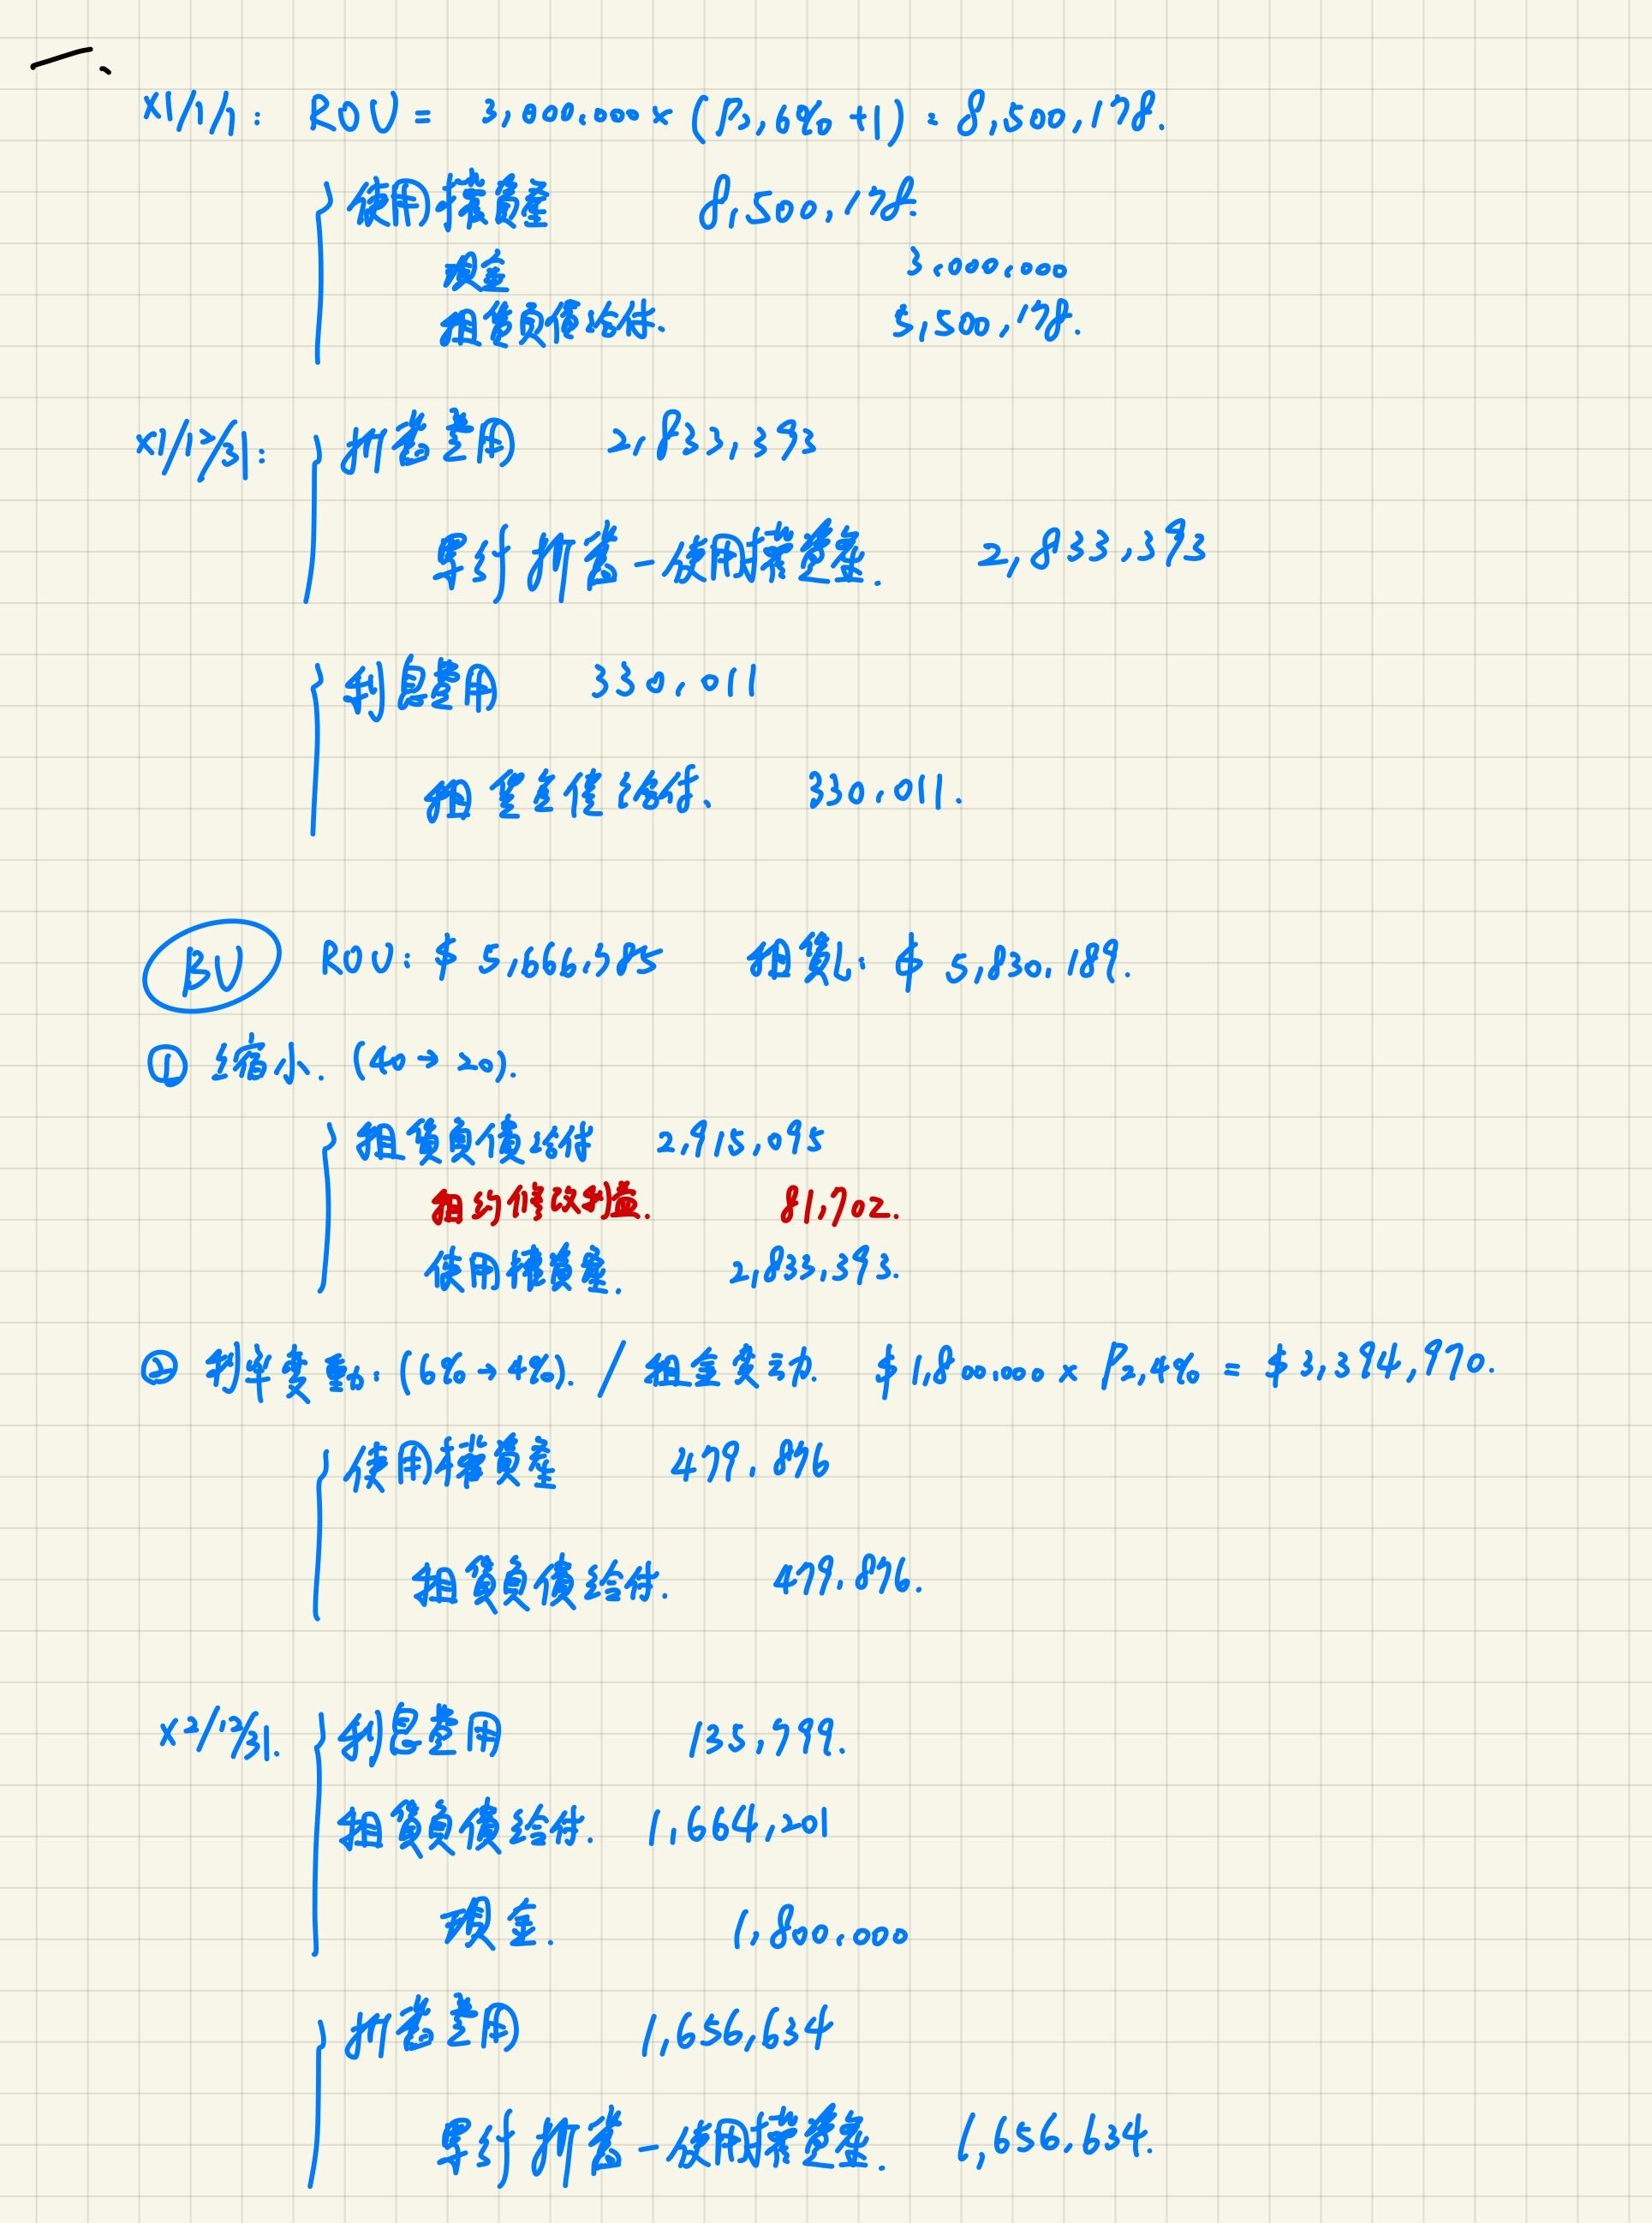 一.
X1/1/1: ROU = 3,000,000 × (P2,6% +1) = 8,500,178.
使用權資產 8,500,178.
現金 3,000,000
租賃負債給付. 5,500,178.
X1/12/31: 折舊費用 2,833,393
累計折舊-使用權資產. 2,833,393
利息費用 330,011
租賃負債給付. 330,011.
BV ROU: $ 5,666,785 租賃L: $ 5,830,189.
① 縮小. (40→20).
租賃負債給付 2,915,095
租約修改利益. 81,702.
使用權資產. 2,833,393.
② 利率變動: (6%→4%). / 租金變動. $1,800,000 × P2,4% = $3,394,970.
使用權資產 479,876
租賃負債給付. 479,876.
X2/12/31. 利息費用 135,799.
租賃負債給付. 1,664,201
現金. 1,800,000
折舊費用 1,656,634
累計折舊-使用權資產. 1,656,634.